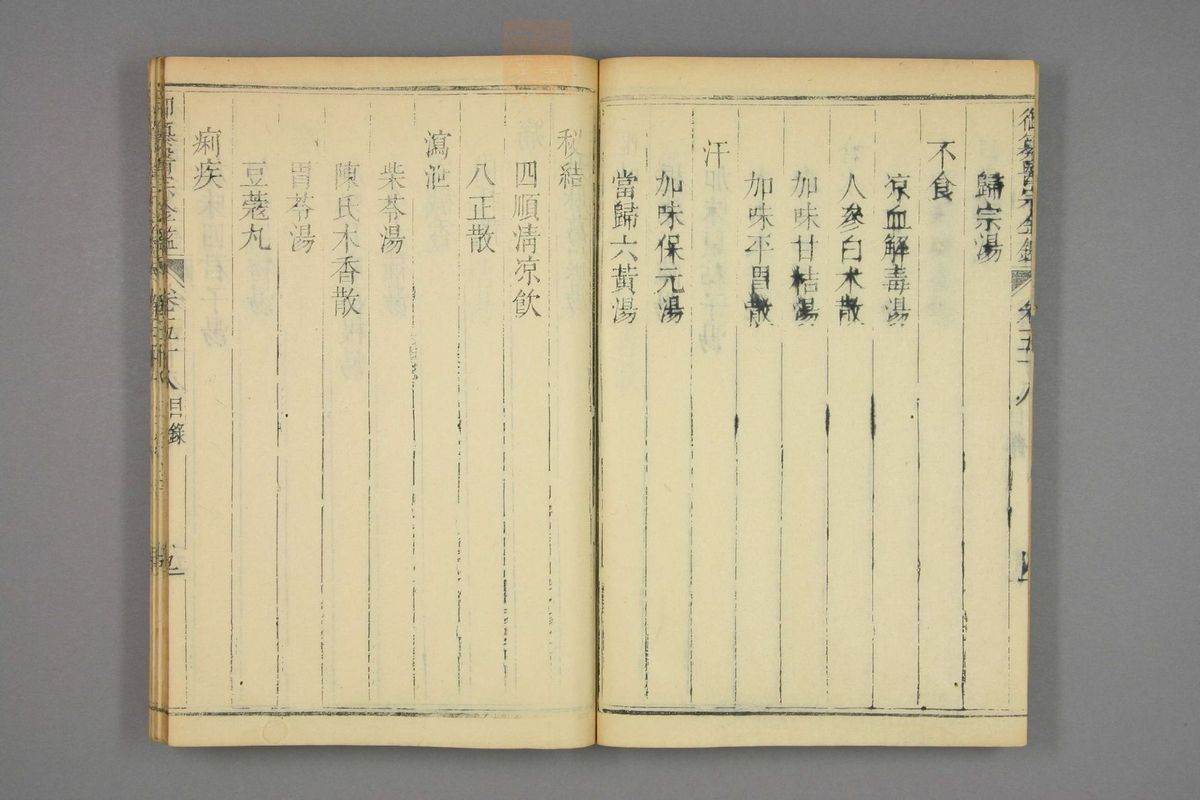 御纂醫宗金鑑
卷五十八
歸宗湯
不食
凉血解毒湯
人參白术散
加味甘桔湯
加味平胃散
汗
加味保元湯
當歸六黃湯
秘結
四順清凉飲
八正散
瀉泄
柴苓湯
陳氏木香散
胃苓湯
豆蔻丸
痢疾
卷五十八
目錄
五